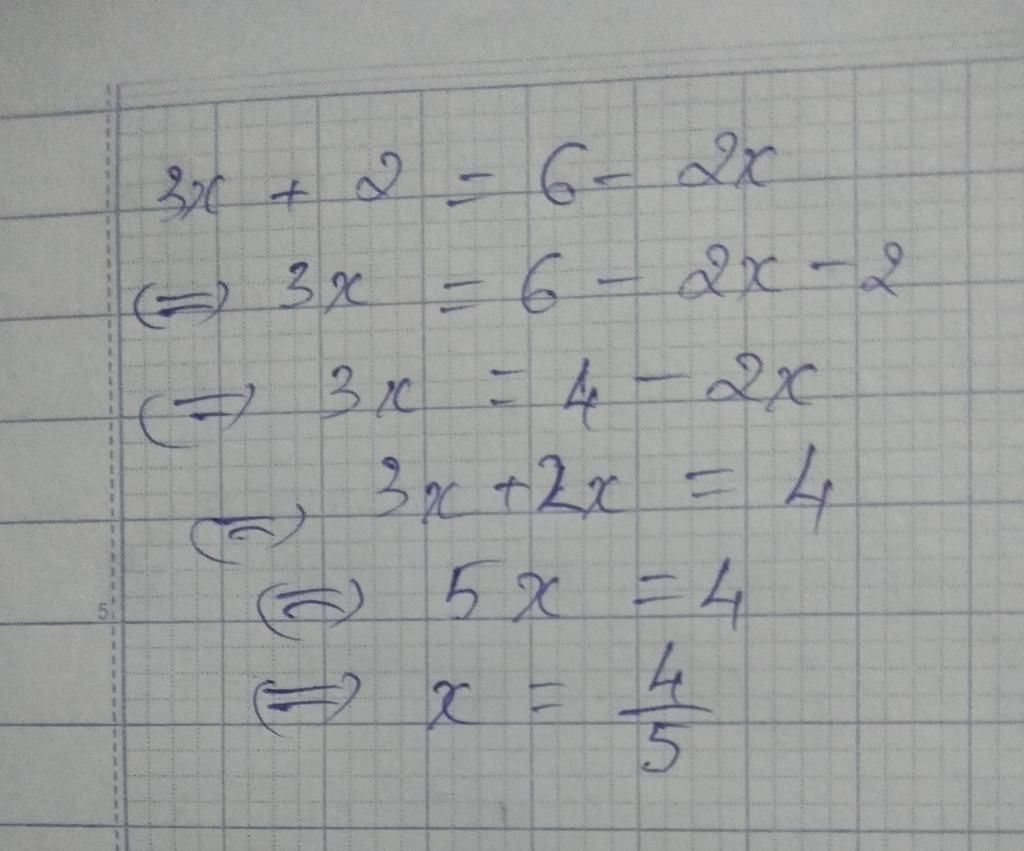 3x + 2 = 6 - 2x
⇔ 3x = 6 - 2x - 2
⇔ 3x = 4 - 2x
⇔ 3x + 2x = 4
5
⇔ 5x = 4
⇔ x = 4/5